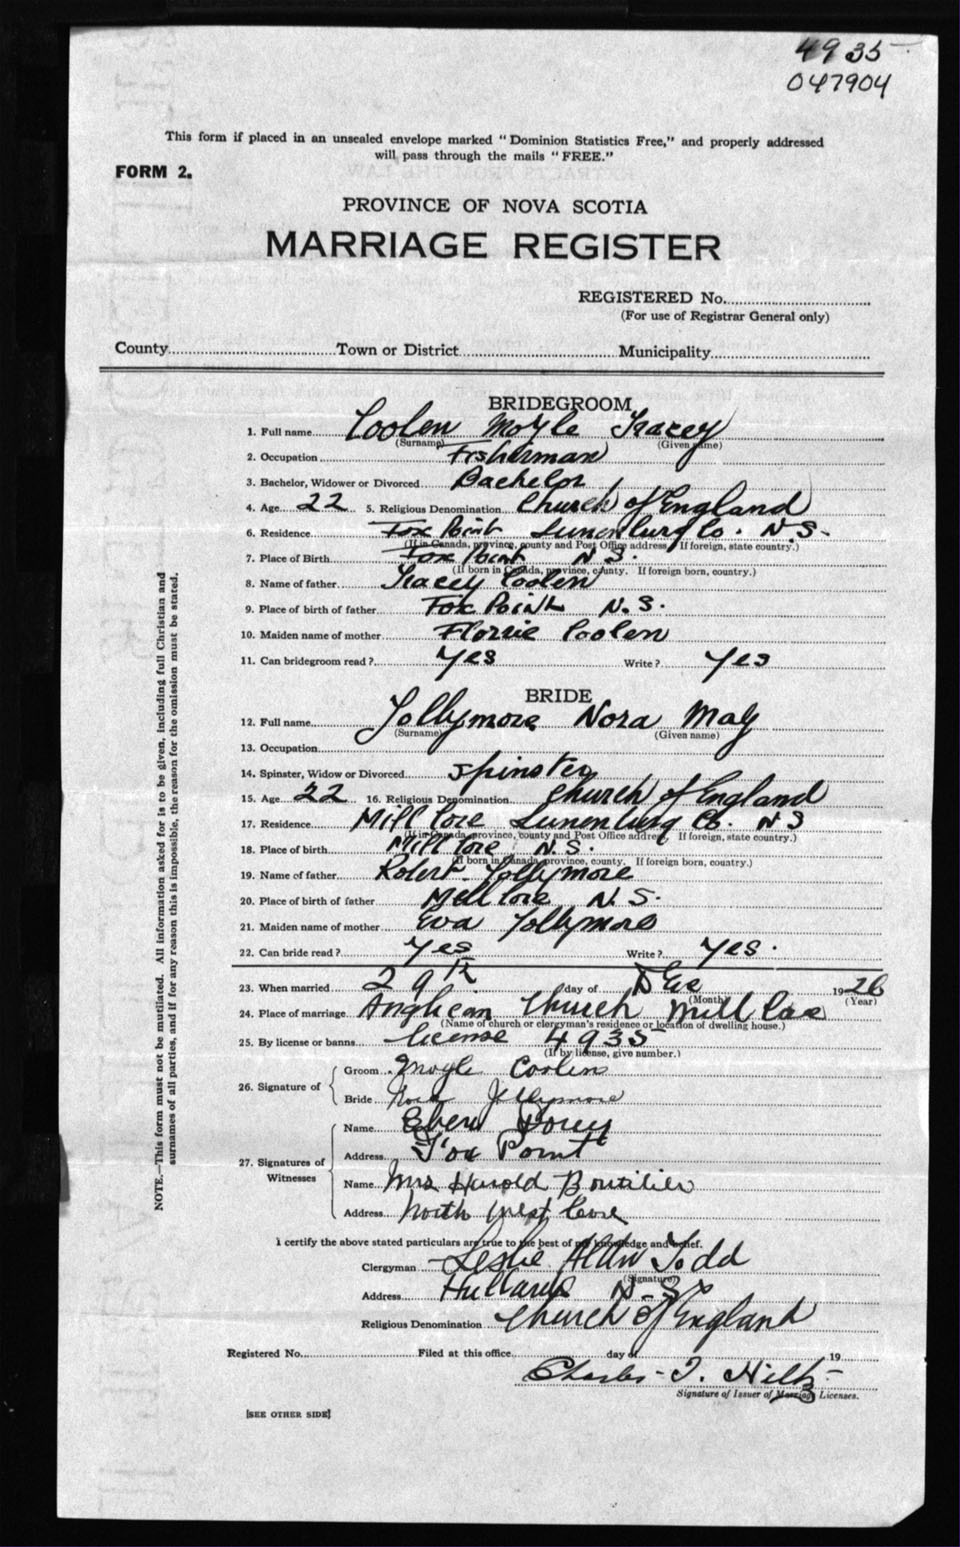 4935
047904
This form if placed in an unsealed envelope marked "Dominion Statistics Free," and properly addressed
will pass through the mails "FREE."
FORM 2.
PROVINCE OF NOVA SCOTIA
MARRIAGE REGISTER
REGISTERED No.
(For use of Registrar General only)
County Town or District Municipality
BRIDEGROOM
1. Full name Coolen Moyle Tracey
(Surname) (Given name)
2. Occupation Fisherman
3. Bachelor, Widower or Divorced Bachelor
4. Age 22 5. Religious Denomination Church of England
6. Residence Fox Point Lunenburg Co. N.S.
(If in Canada, province, county and Post Office address. If foreign, state country.)
7. Place of Birth Fox Point N.S.
(If born in Canada, province, county. If foreign born, country.)
8. Name of father Tracey Coolen
9. Place of birth of father Fox Point N.S.
10. Maiden name of mother Florrie Coolen
11. Can bridegroom read? Yes Write? Yes
BRIDE
12. Full name Jollymore Nora May
(Surname) (Given name)
13. Occupation
14. Spinster, Widow or Divorced Spinster
15. Age 22 16. Religious Denomination Church of England
17. Residence Mill Cove Lunenburg Co. N S
(If in Canada, province, county and Post Office address. If foreign, state country.)
18. Place of birth Mill Cove N.S.
(If born in Canada, province, county. If foreign born, country.)
19. Name of father Robert Jollymore
20. Place of birth of father Mill Cove N.S.
21. Maiden name of mother Eva Jollymore
22. Can bride read? Yes Write? Yes.
23. When married 29th day of Dec 1926
(Month) (Year)
24. Place of marriage Anglican Church Mill Cove
(Name of church or clergyman's residence or location of dwelling house.)
25. By license or banns license 4935
(If by license, give number.)
26. Signature of Groom Moyle Coolen
Bride Nora Jollymore
27. Signatures of Witnesses Name Eben
Address Fox Point
Name Mrs Harold Boutilier
Address North West Cove
I certify the above stated particulars are true to the best of my knowledge and belief.
Clergyman Leslie Allan Todd
(Signature)
Address Hubbards N.S.
Religious Denomination Church of England
Registered No. Filed at this office day of 19
Charles T. Hiltz
Signature of Issuer of Marriage Licenses.
[SEE OTHER SIDE]
NOTE.—This form must not be mutilated. All information asked for is to be given, including full Christian and
surnames of all parties, and if for any reason this is impossible, the reason for the omission must be stated.